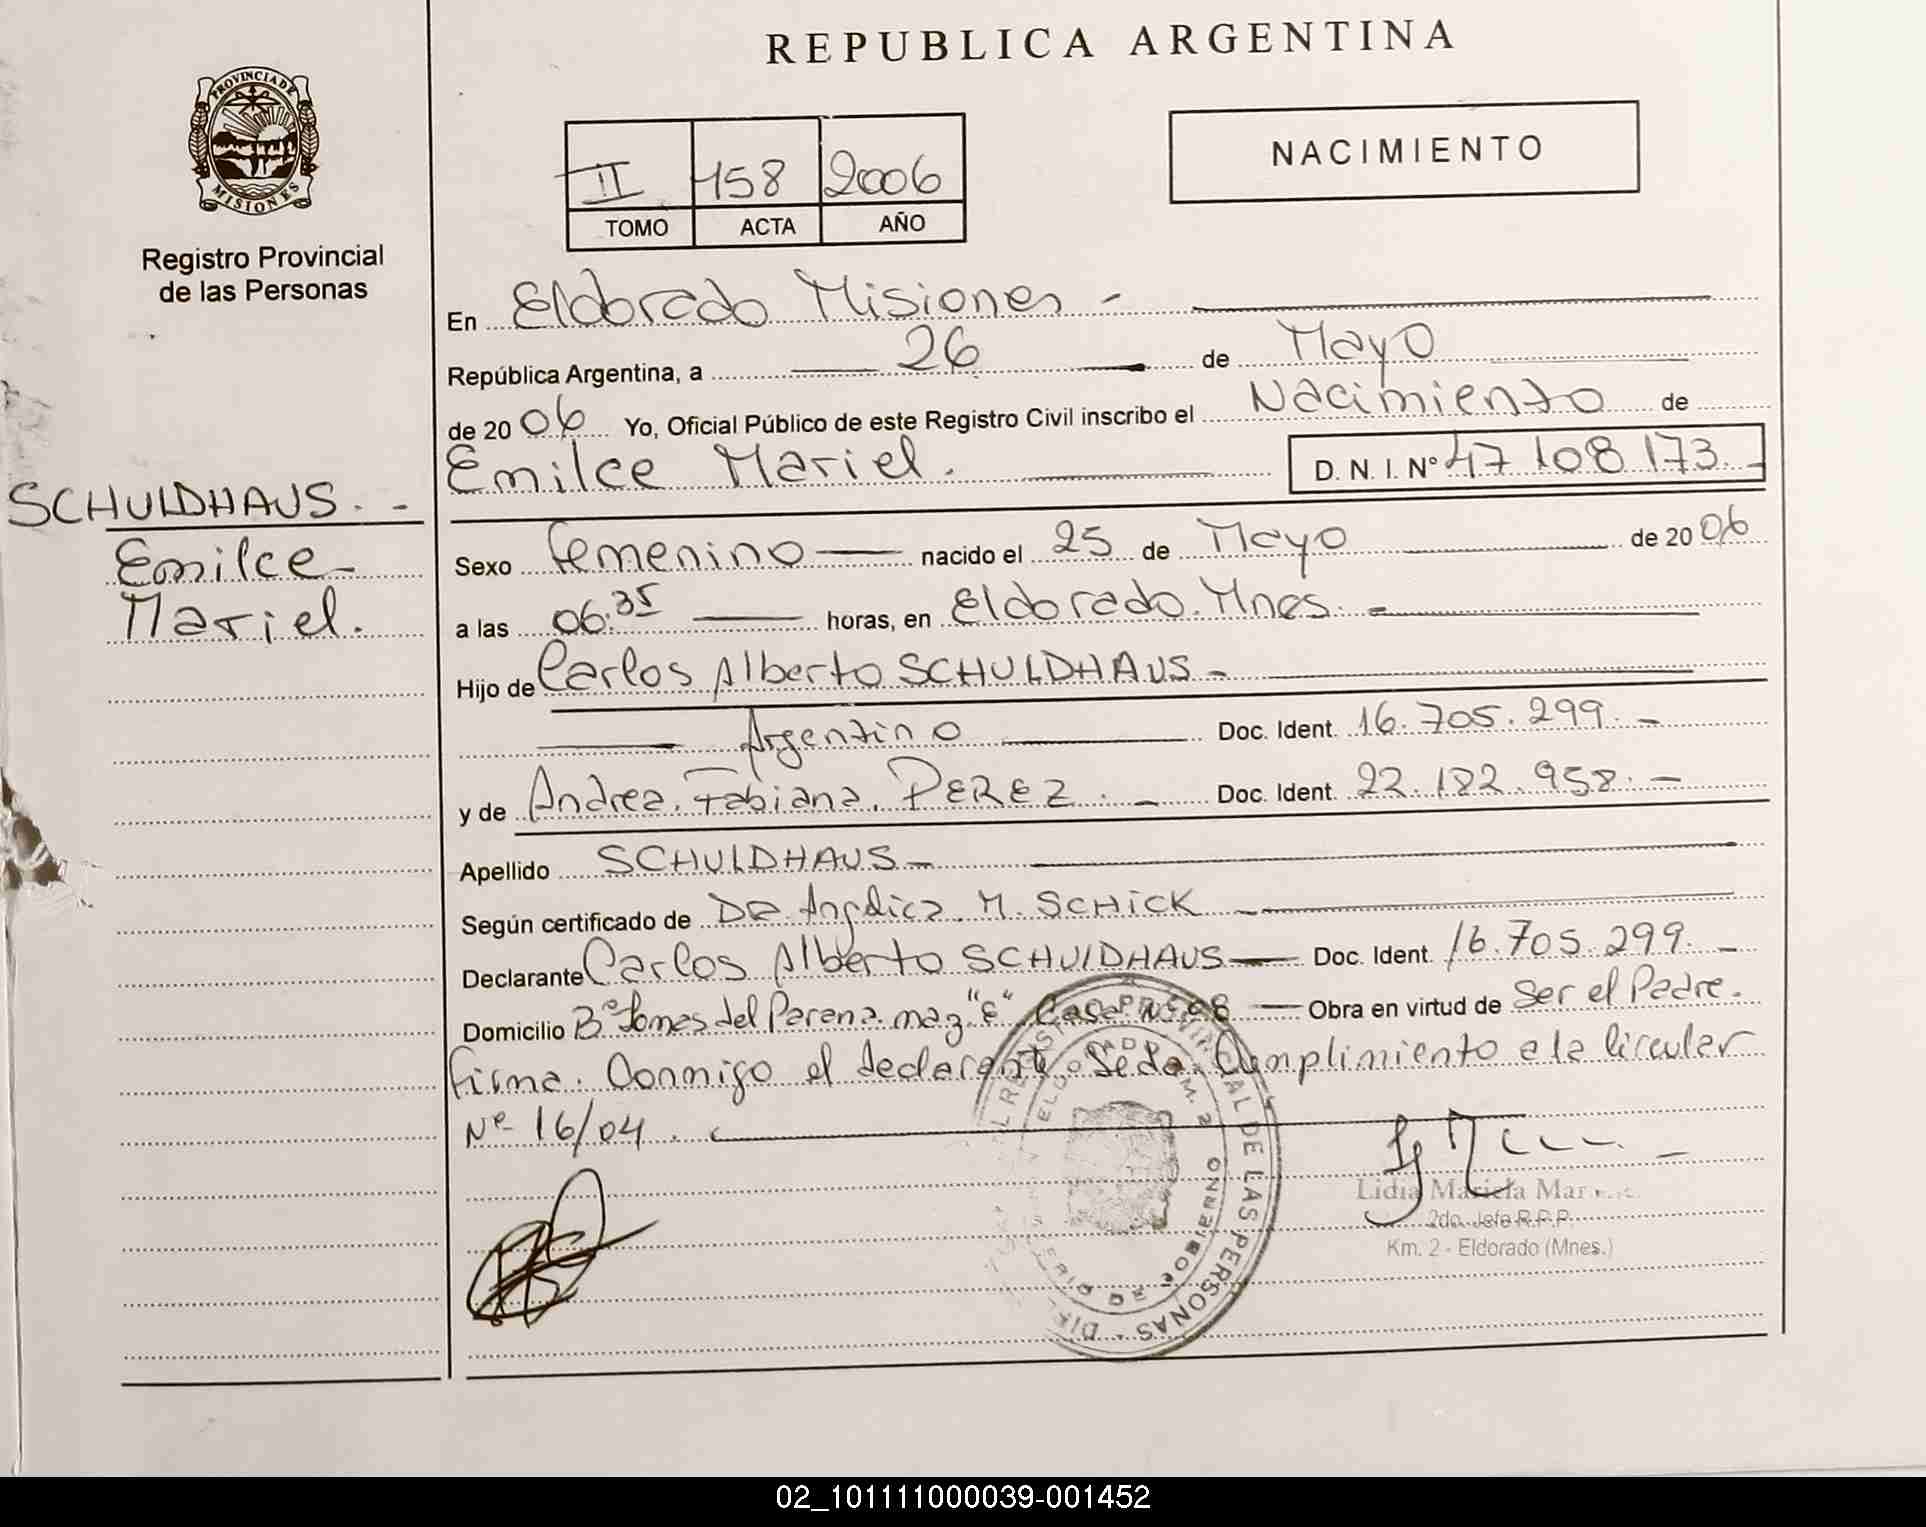 REPUBLICA ARGENTINA
PROVINCIA DE MISIONES
Registro Provincial
de las Personas
II 158 2006
TOMO ACTA AÑO
NACIMIENTO
En Eldorado Misiones -
República Argentina, a 26 de Mayo
de 2006 Yo, Oficial Público de este Registro Civil inscribo el Nacimiento de
Emilce Mariel. D. N. I. N° 47 108 173.-
SCHULDHAUS. -
Emilce
Mariel.
Sexo femenino nacido el 25 de Mayo de 2006
a las 06.35 horas, en Eldorado. Mnes. -
Hijo de Carlos Alberto SCHULDHAUS -
Argentino Doc. Ident. 16.705.299. -
y de Andrea Fabiana PEREZ. - Doc. Ident. 22.182.958. -
Apellido SCHULDHAUS -
Según certificado de Dra. Angélica M. SCHICK -
Declarante Carlos Alberto SCHULDHAUS Doc. Ident. 16.705.299. -
Domicilio B° Lomas del Parana maz "E" Casa Obra en virtud de Ser el Padre.
firma Conmigo el declarante Se da Cumplimiento a la Circular
N° 16/04.
REGISTRO PROVINCIAL DE LAS PERSONAS
ELDORADO KM. 2
MINISTERIO DE GOBIERNO
Lidia Mariela
2do. Jefe R.P.P.
Km. 2 - Eldorado (Mnes.)
02_101111000039-001452